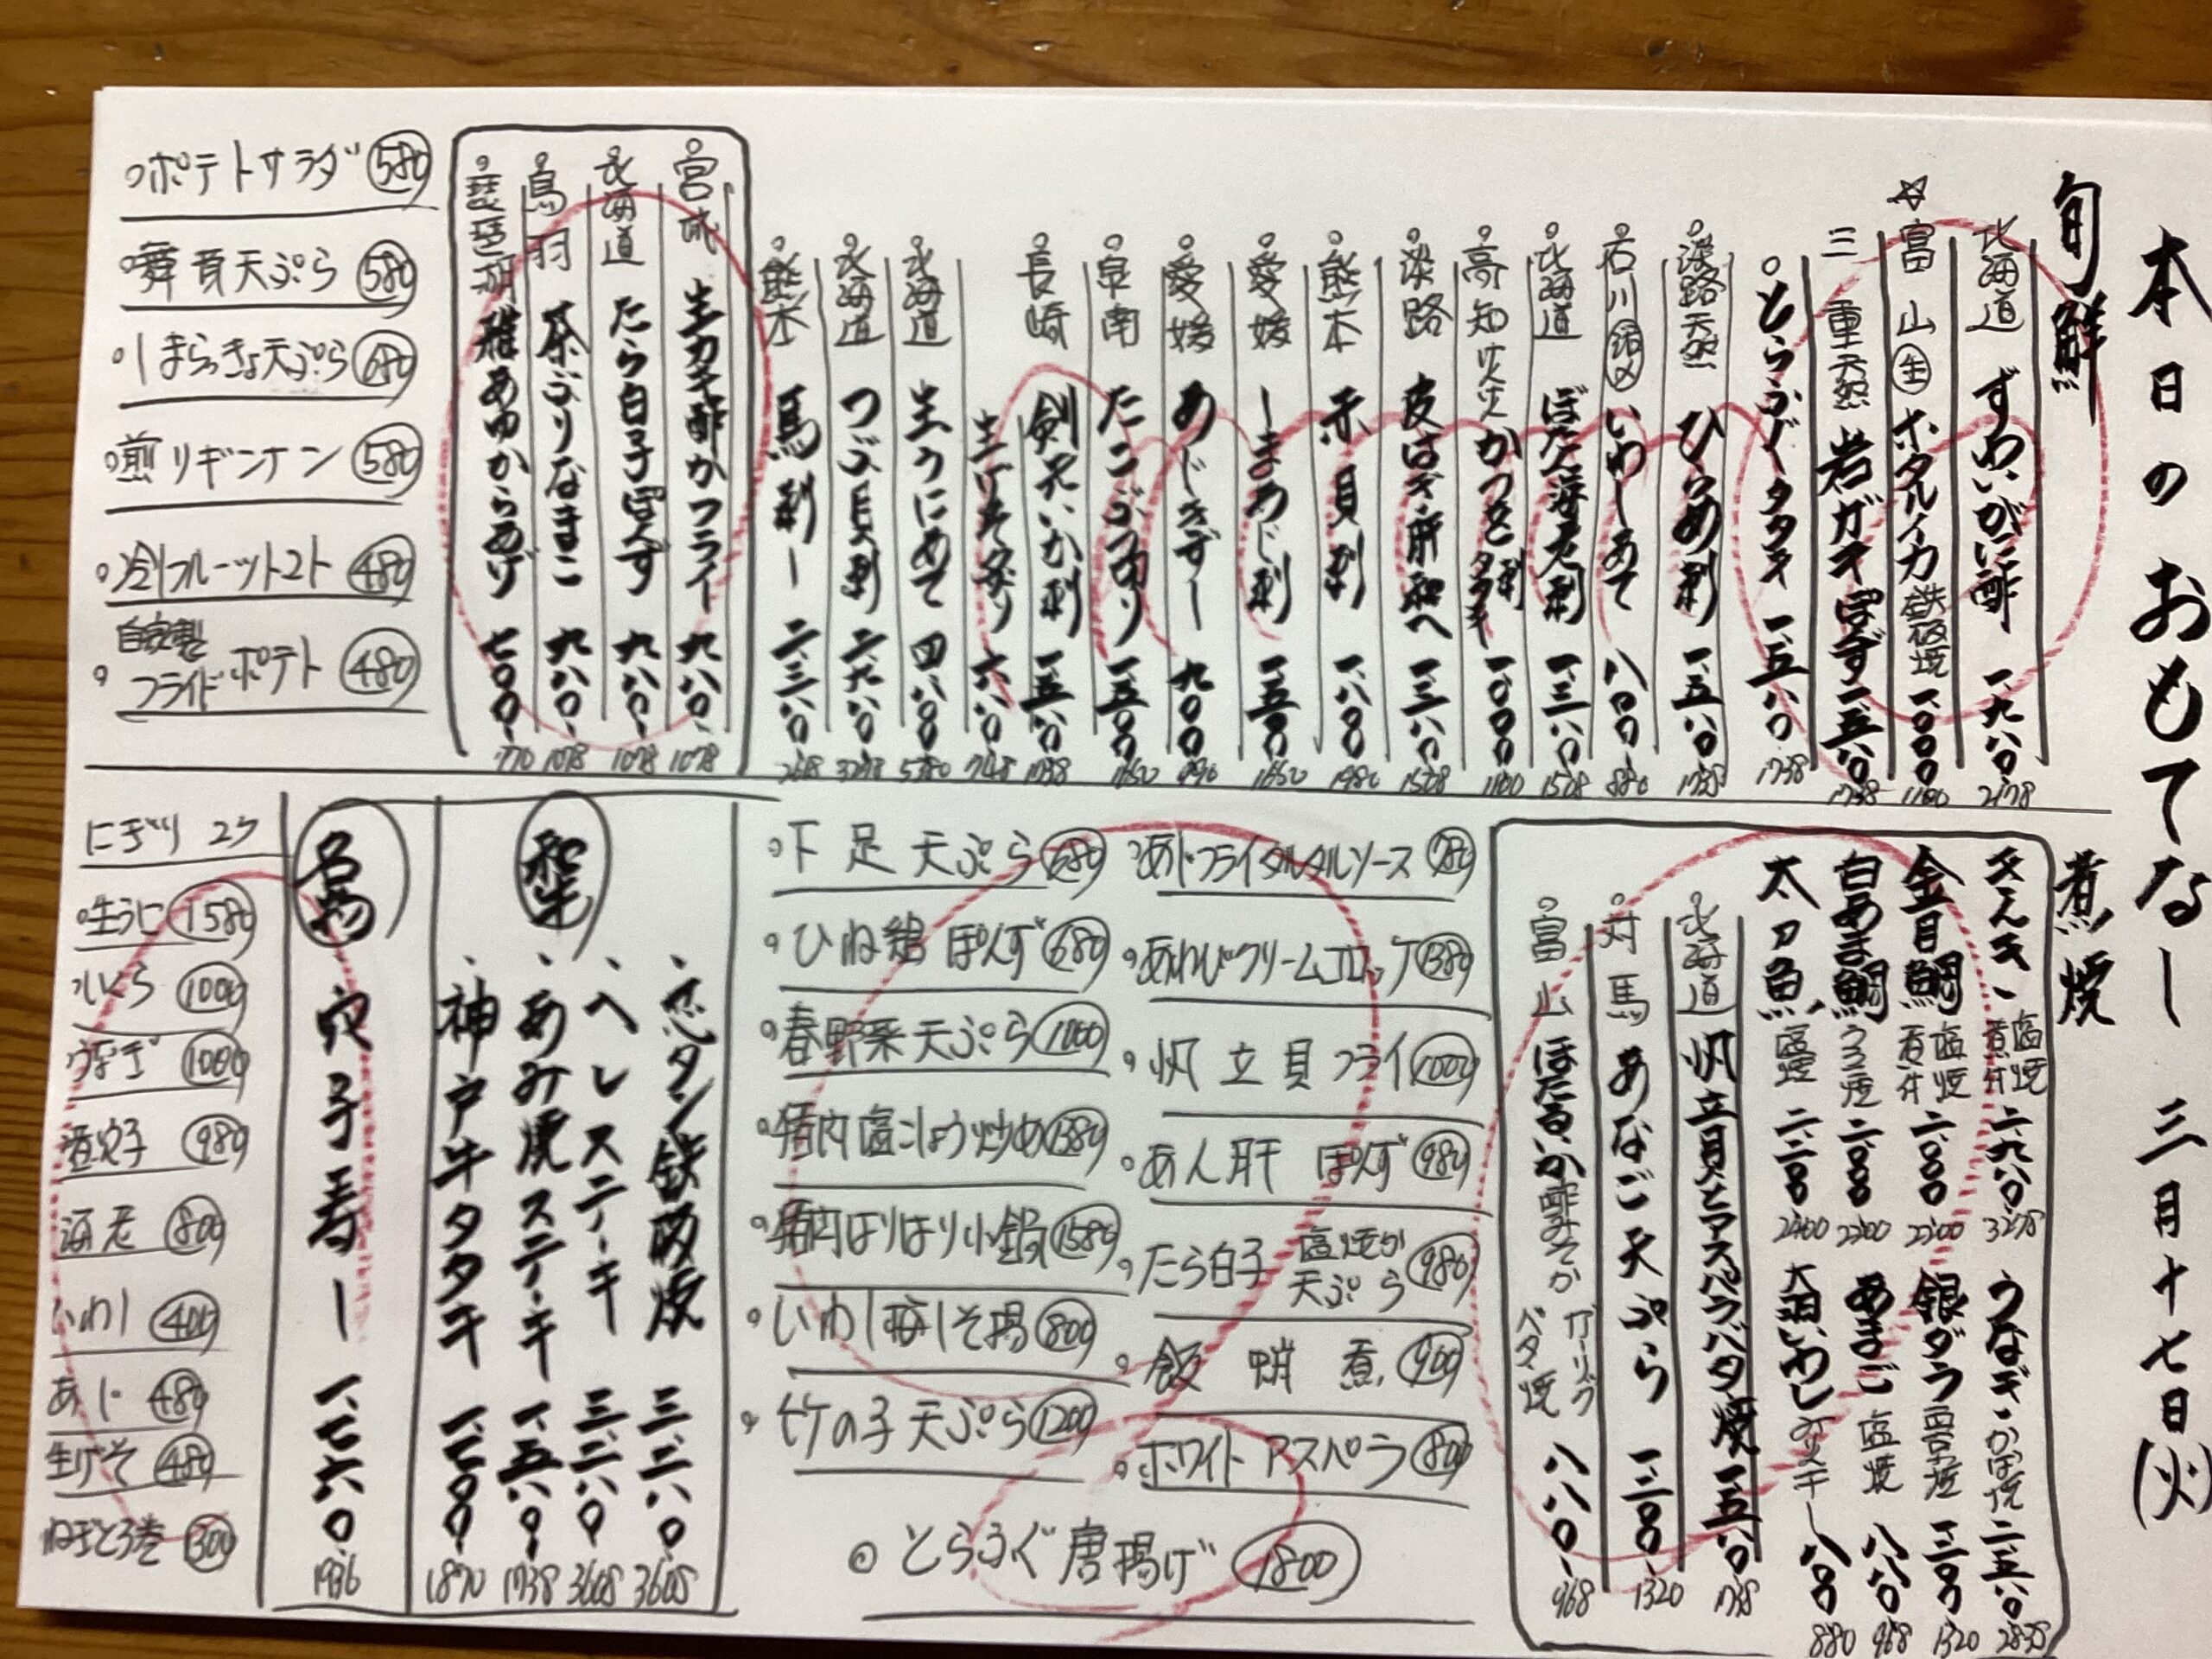 本日のおもてなし 三月十七日(火)
旬鮮
北海道 ずわいがに酢 一、九八〇 2178
☆富山 生 ホタルイカ 鉄板焼 一、〇〇〇 1100
三重天然 岩ガキぽんず 一、五八〇 1738
とらふぐタタキ 一、五八〇 1738
淡路天然 ひらめ刺 一、五八〇 1738
石川 いわしあて 八〇〇 880
北海道 ぼたん海老刺 一、三八〇 1518
高知 かつを 刺 タタキ 一、〇〇〇 1100
淡路 皮はぎ肝和へ 一、三八〇 1518
熊本 赤貝刺 一、八〇〇 1980
愛媛 しまあじ刺 一、五〇〇 1650
愛媛 あじきずし 九〇〇 990
泉南 たこぶつ切り 一、五〇〇 1650
長崎 剣先いか刺 一、五八〇 1738
生げそ 六八〇 748
北海道 生うにあて 四、八〇〇 5280
北海道 つぶ貝刺 二、九八〇 3278
熊本 馬刺し 二、三八〇 2618
宮城 生カキ酢かフライ 九八〇 1078
北海道 たら白子ぽんず 九八〇 1078
鳥羽 茶ぶりなまこ 九八〇 1078
琵琶湖 稚あゆからあげ 七〇〇 770
ポテトサラダ 580
舞茸天ぷら 580
しまらっきょ天ぷら 680
煎りギンナン 580
冷フルーツトマト 480
自家製
フライドポテト 480
煮焼
きんき 塩焼 煮付 二、九八〇 3278
金目鯛 塩焼 煮付 二、〇〇〇 2200
白あま鯛 うろこ焼 二、〇〇〇 2200
太刀魚 塩焼 二、二〇〇 2400
うなぎ かば焼 二、五八〇 2838
銀ダラ 西京焼 一、二〇〇 1320
あまご 塩焼 八八〇 968
大羽いわし 一夜干し 八〇〇 880
北海道 帆立貝とアスパラバタ焼 一、五八〇 1738
対馬 あなご天ぷら 一、二〇〇 1320
富山 ほたるいか酢みそか ガーリックバタ焼 八八〇 968
あじフライタルタルソース 780
あわびクリームコロッケ 1380
帆立貝フライ 1000
あん肝 ぽんず 980
たら白子 塩焼か天ぷら 980
飯蛸煮 900
ホワイトアスパラ 800
下足天ぷら 680
ひね鶏 ぽんず 680
春野菜天ぷら 1000
猪肉塩こしょう炒め 1380
猪肉はりはり小鍋 1580
いわし梅しそ揚 800
竹の子天ぷら 1200
とらふぐ唐揚げ 1800
和牛
芯タン鉄板焼 三、二八〇 3608
ヘレステーキ 三、二八〇 3608
あみ焼ステーキ 一、五八〇 1738
神戸牛タタキ 一、七〇〇 1870
名物
穴子寿し 一、七六〇 1936
にぎり 2ケ
生うに 1580
いくら 1000
うなぎ 1000
煮穴子 980
海老 800
いわし 400
あじ 480
生げそ 480
ねぎとろ巻 1300